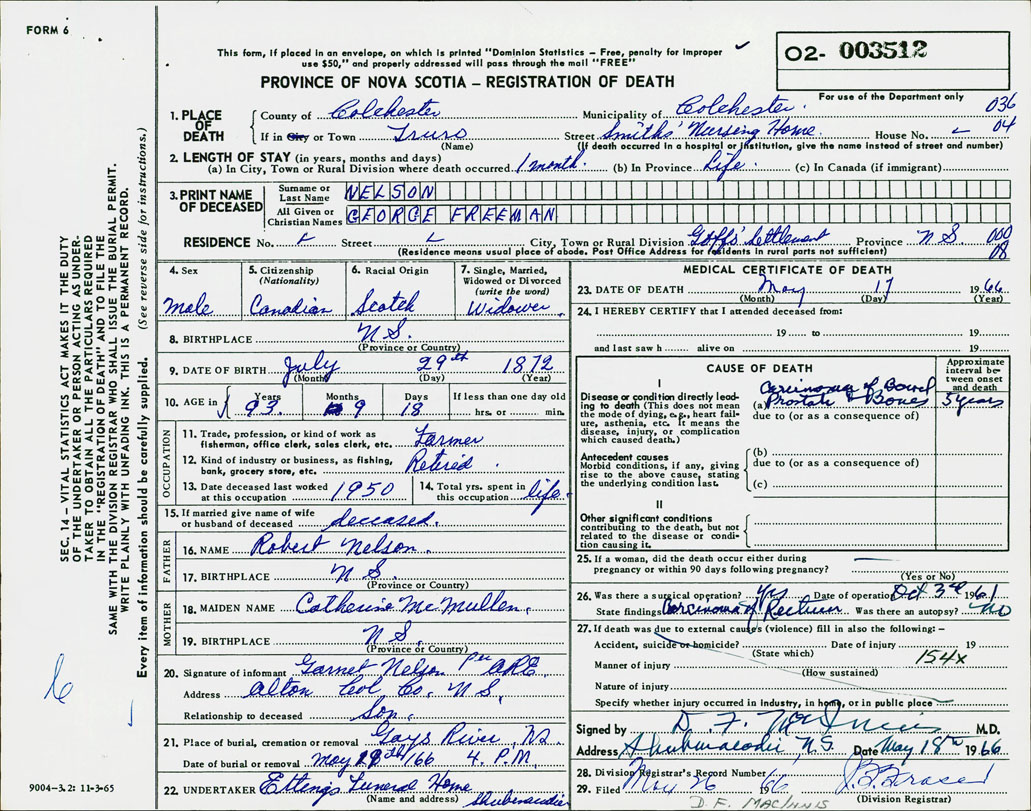 FORM 6
This form, if placed in an envelope, on which is printed "Dominion Statistics – Free, penalty for improper
use $50," and properly addressed will pass through the mail "FREE"
O2- 003512
PROVINCE OF NOVA SCOTIA – REGISTRATION OF DEATH
For use of the Department only
1. PLACE OF DEATH
County of Colchester Municipality of Colchester. 036
If in City or Town Truro Street Smiths' Nursing Home. House No. 04
(Name) (If death occurred in a hospital or institution, give the name instead of street and number)
2. LENGTH OF STAY (in years, months and days)
(a) In City, Town or Rural Division where death occurred 1 month. (b) In Province Life. (c) In Canada (if immigrant)
3. PRINT NAME OF DECEASED
Surname or Last Name NELSON
All Given or Christian Names GEORGE FREEMAN
RESIDENCE No. Street City, Town or Rural Division Goffs' Settlement Province N S 000
(Residence means usual place of abode. Post Office Address for residents in rural parts not sufficient) 08
4. Sex
Male
5. Citizenship
(Nationality)
Canadian
6. Racial Origin
Scotch
7. Single, Married,
Widowed or Divorced
(write the word)
Widower.
8. BIRTHPLACE N S.
(Province or Country)
9. DATE OF BIRTH July 29th 1872
(Month) (Day) (Year)
10. AGE in Years Months Days If less than one day old
93. 9 18 hrs. or min.
OCCUPATION
11. Trade, profession, or kind of work as
fisherman, office clerk, sales clerk, etc. Farmer
12. Kind of industry or business, as fishing,
bank, grocery store, etc. Retired.
13. Date deceased last worked
at this occupation 1950
14. Total yrs. spent in
this occupation life.
15. If married give name of wife
or husband of deceased deceased.
FATHER
16. NAME Robert Nelson.
17. BIRTHPLACE N S.
(Province or Country)
MOTHER
18. MAIDEN NAME Catherine McMullen.
19. BIRTHPLACE N S.
(Province or Country)
20. Signature of informant Garnet Nelson Per ARE
Address Alton Col Co. N S.
Relationship to deceased Son.
21. Place of burial, cremation or removal Gays River, NS
Date of burial or removal May 19th/66 4. P.M.
22. UNDERTAKER Ettings Funeral Home
(Name and address) Shubenacadie
MEDICAL CERTIFICATE OF DEATH
23. DATE OF DEATH May 17 1966
(Month) (Day) (Year)
24. I HEREBY CERTIFY that I attended deceased from:
19 to 19
and last saw h alive on 19
CAUSE OF DEATH
Approximate
interval be-
tween onset
and death
I
Disease or condition directly lead-
ing to death (This does not
mean the mode of dying, e.g., heart fail-
ure, asthenia, etc. It means the
disease, injury, or complication
which caused death.)
Carcinoma of Bowel
(a) Prostate & Bones 5 years
due to (or as a consequence of)
Antecedent causes
Morbid conditions, if any, giving
rise to the above cause, stating
the underlying condition last.
(b)
due to (or as a consequence of)
(c)
II
Other significant conditions
contributing to the death, but not
related to the disease or condi-
tion causing it.
25. If a woman, did the death occur either during
pregnancy or within 90 days following pregnancy?
(Yes or No)
26. Was there a surgical operation? Yes Date of operation Oct 3rd 1961
State findings Carcinoma of Rectum Was there an autopsy? No
27. If death was due to external causes (violence) fill in also the following: –
Accident, suicide or homicide? Date of injury 19
(State which) 154X
Manner of injury
(How sustained)
Nature of injury
Specify whether injury occurred in industry, in home, or in public place
Signed by D. F. McInnis M.D.
Address Shubenacadie N.S. Date May 18th 1966
28. Division Registrar's Record Number
29. Filed May 26 1966
(Division Registrar)
D. F. MACINNIS
SEC. 14 – VITAL STATISTICS ACT MAKES IT THE DUTY
OF THE UNDERTAKER OR PERSON ACTING AS UNDER-
TAKER TO OBTAIN ALL THE PARTICULARS REQUIRED
IN THE "REGISTRATION OF DEATH" AND TO FILE THE
SAME WITH THE DIVISION REGISTRAR WHO SHALL ISSUE THE BURIAL PERMIT.
WRITE PLAINLY WITH UNFADING INK. THIS IS A PERMANENT RECORD.
Every item of information should be carefully supplied. (See reverse side for instructions.)
9004–3.2: 11-3-65